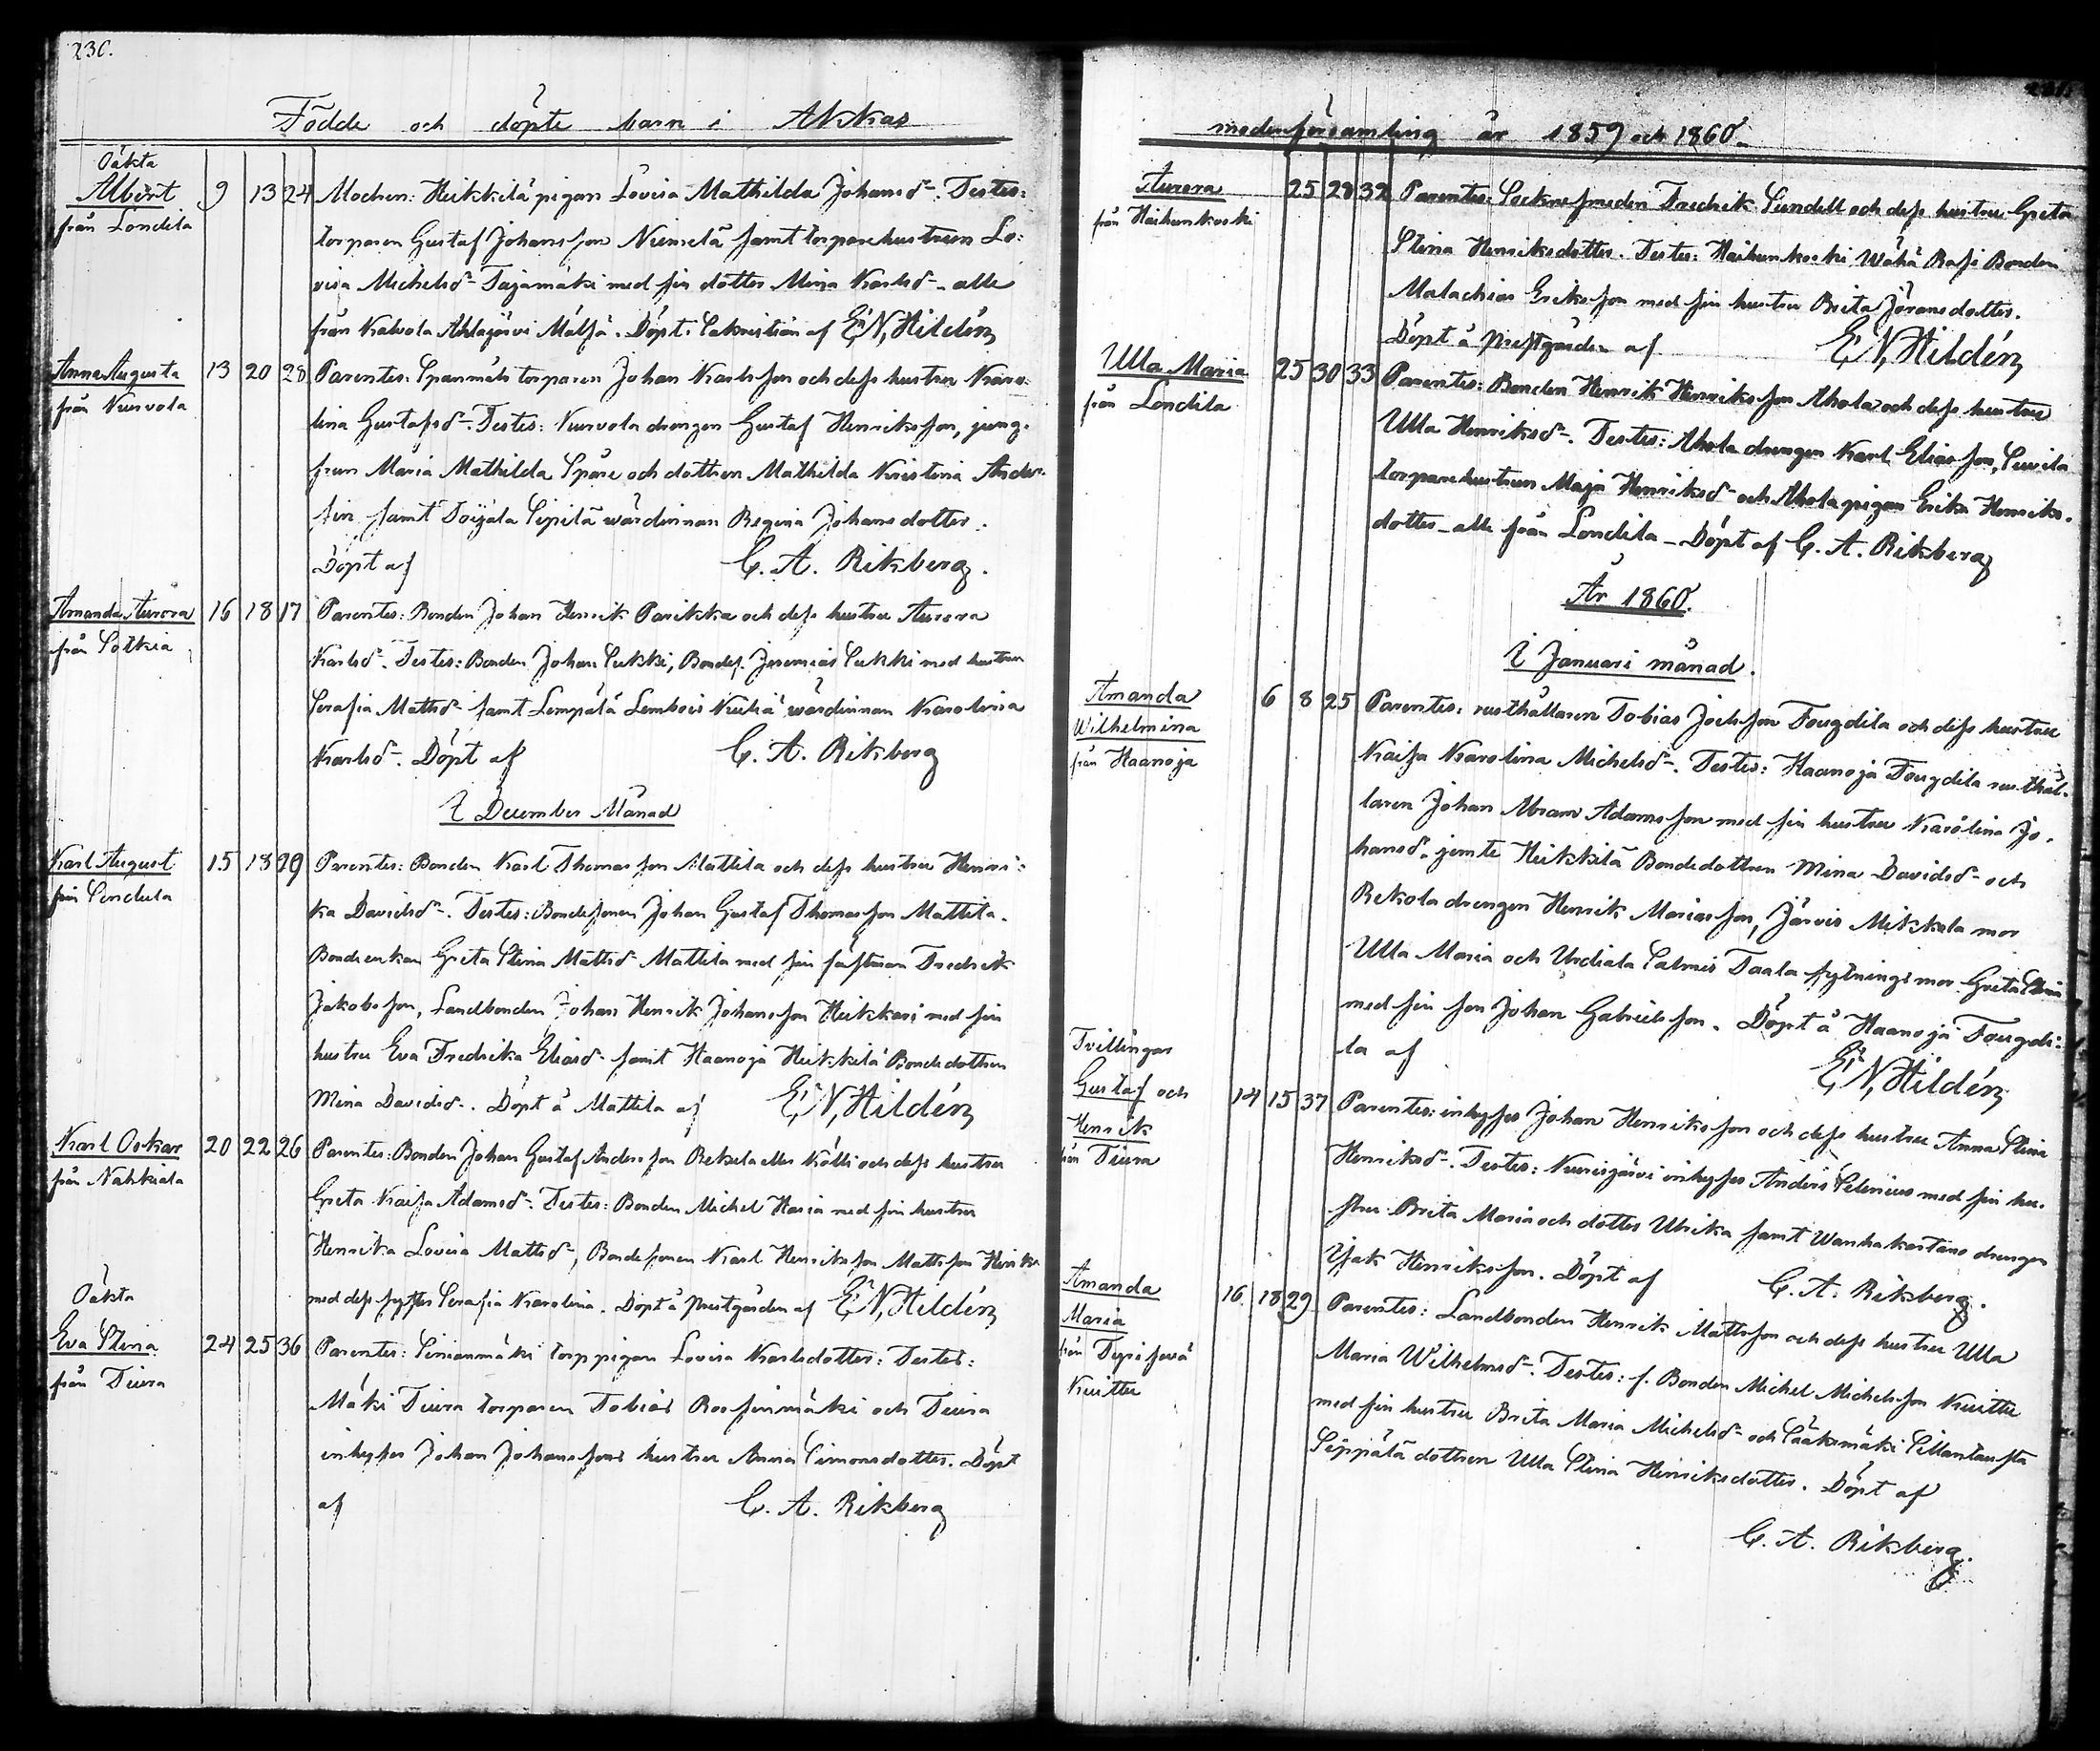 230.
Födde och döpte barn i Akkas
Oäkta
Albert 9 13 24 Modren: Heikkilä pigan Lovisa Mathilda Johansd:r. Testes:
från Londila torparen Gustaf Johansson Niemelä samt torparehustrun Lo:
visa Michelsd:r Tajamäki med sin dotter Mina Karlsd:r - alle
från Kalvola Ahlajärvi Mälsä. Döpt i Sakristian af E. N. Hildén
Anna Augusta 13 20 28 Parentes: Spanmäki torparen Johan Karlsson och dess hustru Karo:
från Kurvola lina Gustafsd:r. Testes: Kurvola drengen Gustaf Henriksson, jung-
frun Maria Mathilda Spåre och dottren Mathilda Kristina Anders-
sin samt Toijala Sipilä wärdinnan Regina Johansdotter.
Döpt af C. A. Rikberg.
Amanda Aurora 16 18 17 Parentes: Bonden Johan Henrik Parikka och dess hustru Aurora
från Sotkia Karlsd:r. Testes: Bonden Johan Sukki, Bondes. Jeremias Sukki med hustrun
Serafia Mattsd:r samt Lempälä Lembois Kuikä wärdinnan Karolina
Karlsd:r. Döpt af C. A. Rikberg
I December Månad
Karl August 15 18 29 Parentes: Bonden Karl Thomasson Mattila och dess hustru Henri:
från Sendula ka Davidsd:r. Testes: Bondesonen Johan Gustaf Thomasson Mattila.
Bondeenkan Greta Stina Mattsd:r Mattila med sin fästman Fredrik
Jakobsson, Landbonden Johan Henrik Johansson Heikkari med sin
hustru Eva Fredrika Eliasd:r samt Haanoja Heikkilä Bondedottren
Mina Davidsd:r. Döpt å Mattila af E. N. Hildén
Karl Oskar 20 22 26 Parentes: Bonden Johan Gustaf Andersson Rekola eller Kölli och dess hustru
från Nahkiala Greta Kaisa Adamsd:r. Testes: Bonden Michel Haria med sin hustru
Henrika Lovisa Mattsd:r, Bondesonen Karl Henriksson Mattsson
med dess syster Serafia Karolina. Döpt å Prestgården af E. N. Hildén
Oäkta
Eva Stina 24 25 36 Parentes: Simanmäki torppigan Lovisa Karlsdotter: Testes:
från Tiura Mäki Tiura torparen Tobias Rossinmäki och Tiura
inhyses Johan Johanssons hustru Anna Simonsdotter. Döpt
af C. A. Rikberg
moderförsamling år 1859 och 1860.
Aurora 25 28 32 Parentes: Socknesmeden Fredrik Sundell och dess hustru Greta
från Haihunkoski Stina Henriksdotter. Testes: Haihunkoski Wähä Rasi Bonden
Malachias Eriksson med sin hustru Brita Jöransdotter.
Döpt å Prestgården af E. N. Hildén
Ulla Maria 25 30 33 Parentes: Bonden Henrik Henriksson Ahola och dess hustru
från Londila Ulla Henriksd:r. Testes: Ahola drengen Karl Eliasson, Suvila
torparehustrun Maja Henriksd:r och Ahola pigan Erika Henriks-
dotter - alle från Londila - Döpt af C. A. Rikberg
År 1860.
I Januari månad.
Amanda 6 8 25 Parentes: rusthållaren Tobias Joelsson Fougdila och dess hustru
Wilhelmina Kaisa Karolina Michelsd:r. Testes: Haanoja Fougdila rusthål-
från Haanoja laren Johan Abram Adamsson med sin hustru Karolina Jo-
hansd:r. jemte Heikkilä Bondedottren Mina Davidsd:r och
Rekola drengen Henrik Mariasson, Järvis Mikkola mor
Ulla Maria och Urdiala Salmis Taala sytningsmor Greta Stina
med sin son Johan Gabrielsson. Döpt å Haanoja Fougdi:
la af E. N. Hildén
Tvillingar
Gustaf och 14 15 37 Parentes: inhyses Johan Henriksson och dess hustru Anna Stina
Henrik Henriksd:r. Testes: Kurisjärvi inhyses Anders Selenius med sin hu-
från Tiura stru Brita Maria och dotter Ulrika samt Wanhakartano drengen
Isak Henriksson. Döpt af C. A. Rikberg.
Amanda 16. 18 29 Parentes: Landbonden Henrik Mattsson och dess hustru Ulla
Maria Maria Wilhelmsd:r. Testes: f. Bonden Michel Michelsson Kuittu
från med sin hustru Brita Maria Michelsd:r och Sääksmäki
Kuittu Seppälä dottren Ulla Stina Henriksdotter. Döpt af
C. A. Rikberg.